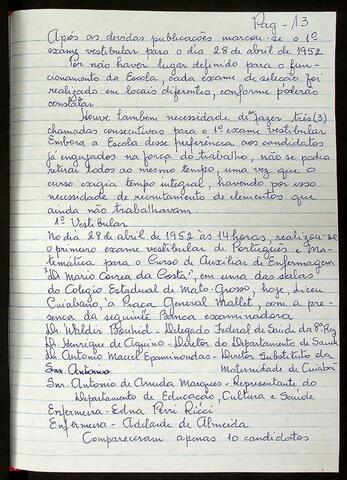 Pag - 13
Após as devidas publicações marcou-se o 1º
exame vestibular para o dia 28 de abril de 1952
Por não haver lugar definido para o fun-
cionamento da Escola, cada exame de seleção foi
realizado em locais diferentes, conforme poderão
constatar.
Houve também necessidade de fazer três (3)
chamadas consecutivas para o 1º exame vestibular
Embora a Escola desse preferência aos candidatos
já engajados na força do trabalho, não se podia
retirar todos ao mesmo tempo, uma vez que o
curso exigia tempo integral, havendo por isso
necessidade de recrutamento de elementos que
ainda não trabalhavam.
1º Vestibular
No dia 28 de abril de 1952 às 14 horas, realizou-se
o primeiro exame vestibular de Português e Ma-
temática para o Curso de Auxiliar de Enfermagem
"Dr Mario Correa da Costa", em uma das salas
do Colégio Estadual de Mato-Grosso, hoje, Liceu
Cuiabano, à Praça General Mallet, com a pre-
sença da seguinte Banca examinadora
Dr Waldir Bouhid - Delegado Federal de Saúde da 8ª Reg
Dr. Henrique de Aquino - Diretor do Departamento de Saúde
Dr Antonio Maciel Epaminondas - Diretor Substituto da
Snr. Antonio Maternidade de Cuiabá
Snr. Antonio de Arruda Marques - Representante do
Departamento de Educação, Cultura e Saúde
Enfermeira - Edna Perri Ricci
Enfermeira - Adelaide de Almeida
Compareceram apenas 10 candidatos